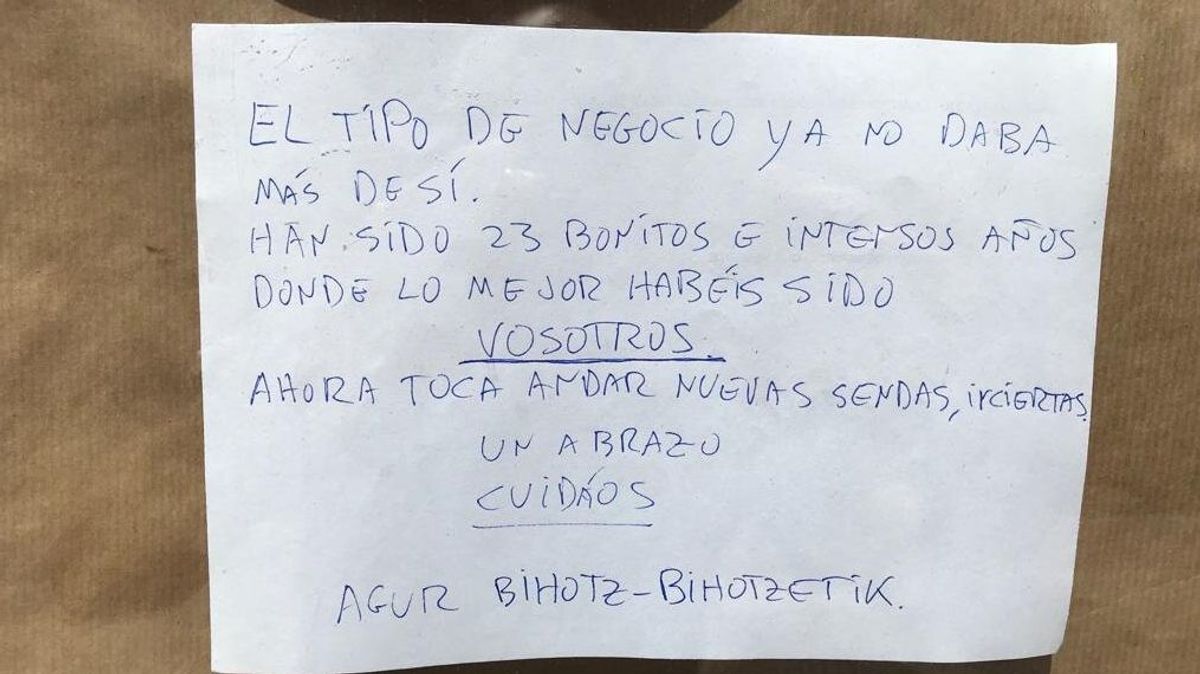 EL TIPO DE NEGOCIO YA NO DABA
MÁS DE SÍ.
HAN SIDO 23 BONITOS E INTENSOS AÑOS
DONDE LO MEJOR HABÉIS SIDO
VOSOTROS.
AHORA TOCA ANDAR NUEVAS SENDAS, INCIERTAS.
UN ABRAZO
CUIDÁOS
AGUR BIHOTZ-BIHOTZETIK.